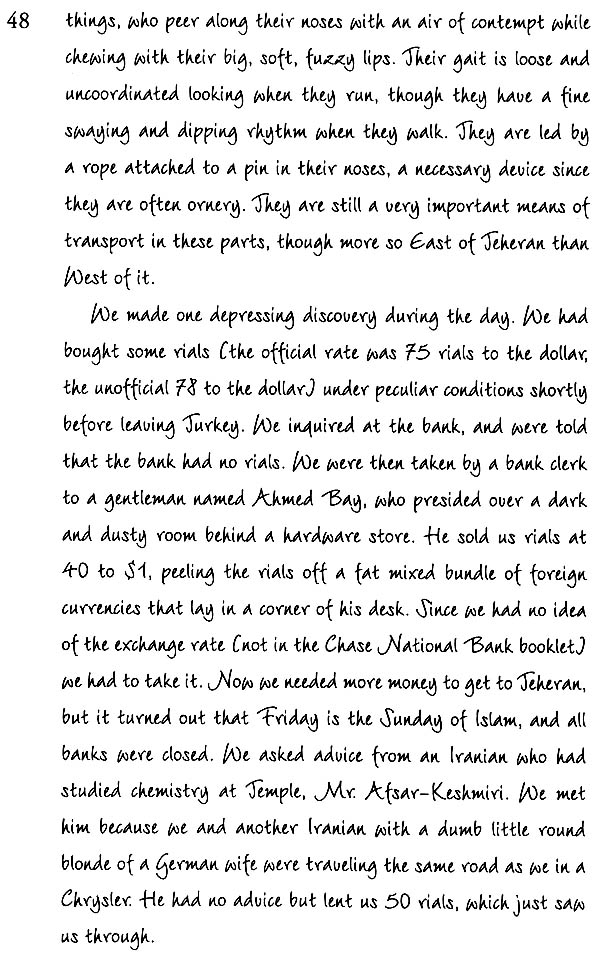 48
things, who peer along their noses with an air of contempt while
chewing with their big, soft, fuzzy lips. Their gait is loose and
uncoordinated looking when they run, though they have a fine
swaying and dipping rhythm when they walk. They are led by
a rope attached to a pin in their noses, a necessary device since
they are often ornery. They are still a very important means of
transport in these parts, though more so East of Teheran than
West of it.
We made one depressing discovery during the day. We had
bought some rials (the official rate was 75 rials to the dollar,
the unofficial 78 to the dollar) under peculiar conditions shortly
before leaving Turkey. We inquired at the bank, and were told
that the bank had no rials. We were then taken by a bank clerk
to a gentleman named Ahmed Bay, who presided over a dark
and dusty room behind a hardware store. He sold us rials at
40 to $1, peeling the rials off a fat mixed bundle of foreign
currencies that lay in a corner of his desk. Since we had no idea
of the exchange rate (not in the Chase National Bank booklet)
we had to take it. Now we needed more money to get to Teheran,
but it turned out that Friday is the Sunday of Islam, and all
banks were closed. We asked advice from an Iranian who had
studied chemistry at Temple, Mr. Afsar-Keshmiri. We met
him because we and another Iranian with a dumb little round
blonde of a German wife were traveling the same road as we in a
Chrysler. He had no advice but lent us 50 rials, which just saw
us through.